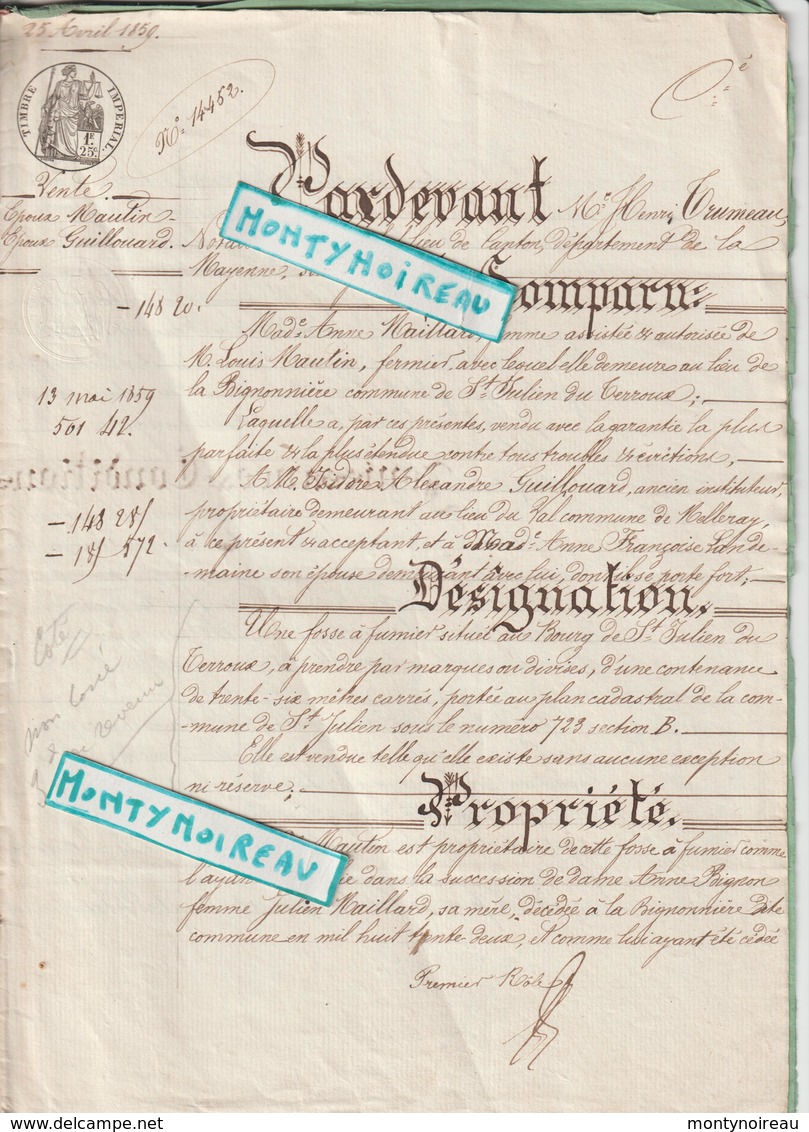 25 Avril 1859.
TIMBRE IMPERIAL.
1F.
25c.
No. 14452.
Vente
Epoux Mautin
Epoux Guillouard.
148 20.
13 mai 1859
501 42.
Pardevant Me. Henri Trumeau,
lieu de Canton, département de la
Mayenne,
Comparu:
Made. Anne Maillard, femme assistée & autorisée de
M. Louis Mautin, fermier, avec lequel elle demeure au lieu de
la Bignonnière commune de St. Julien du Terroux;
Laquelle a, par ces présentes, vendu avec la garantie la plus
parfaite & la plus étendue contre tous troubles & évictions,
A M. Isidore Alexandre Guillouard, ancien instituteur,
propriétaire demeurant au lieu du Val commune de Melleray,
à ce présent & acceptant, et à Made. Anne Françoise Lande-
maine son épouse demeurant avec lui, dont il se porte fort;
Désignation.
Une fosse à fumier située au Bourg de St. Julien du
Terroux, à prendre par marques ou divises, d'une contenance
de trente-six mètres carrés, portée au plan cadastral de la com-
mune de St. Julien sous le numero 723 section B.
Elle est vendue telle qu'elle existe sans aucune exception
ni réserve;
Propriété.
Mautin est propriétaire de cette fosse à fumier comme
l'ayant dans la succession de dame Anne Bignon
femme Julien Maillard, sa mère, décédée à la Bignonnière dite
commune en mil huit trente-deux, et comme lui ayant été cédée
Premier Rôle
MONTYNOIREAU
MONTYNOIREAU
montynoireau